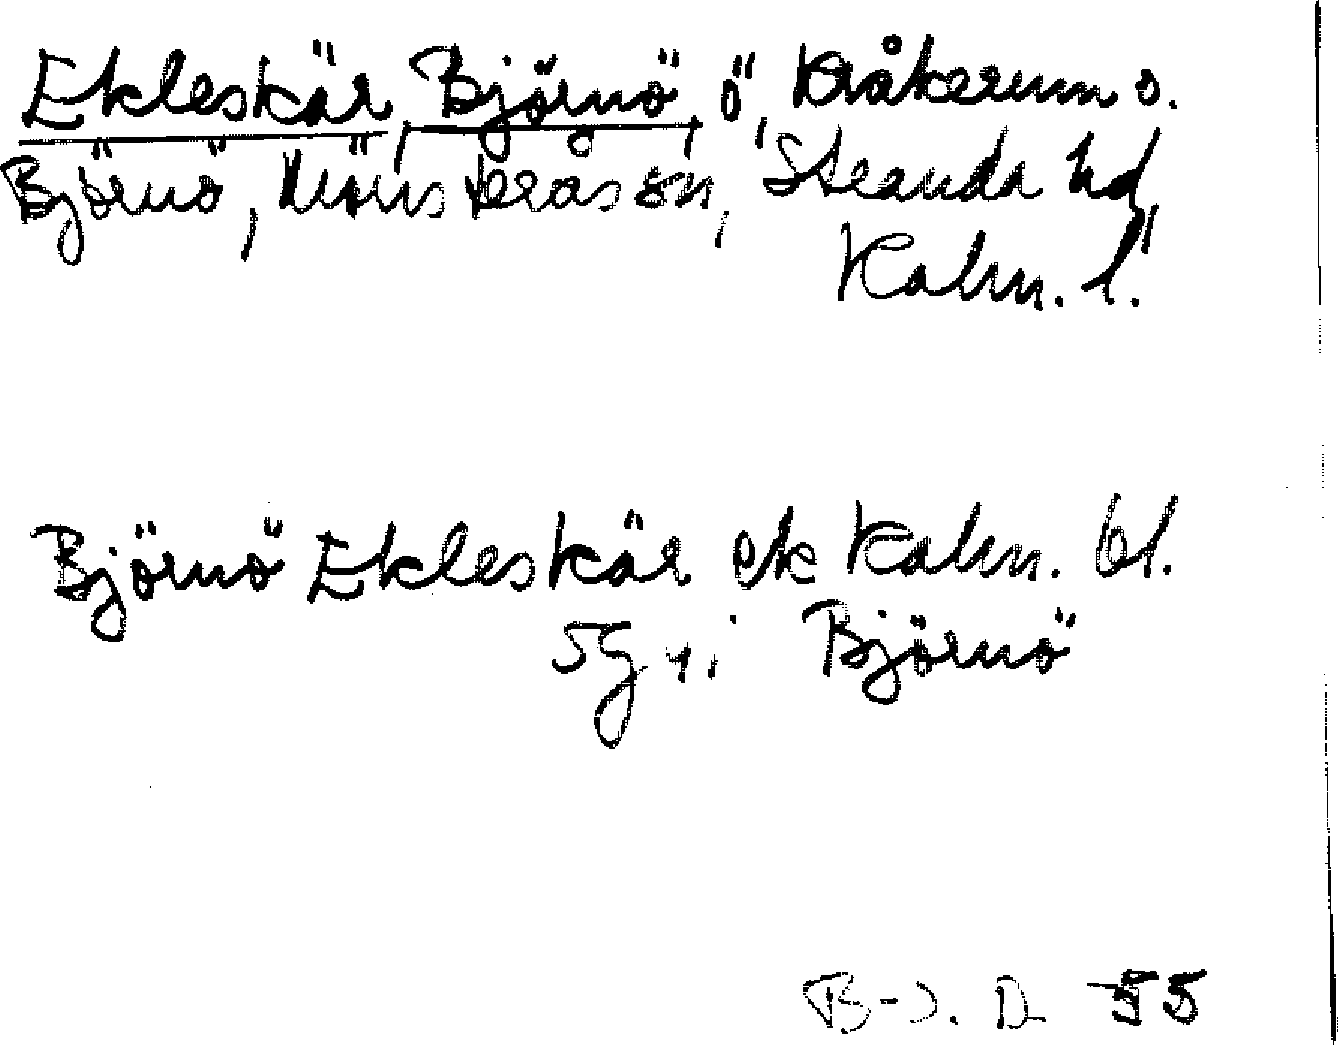 Ekleskär, Björnö, ö, Kråkerum o.
Björnö, Mönsterås sn, Stranda hd,
Kalm. l.
Björnö Ekleskär ek Kalm. bl.
5g v. i Björnö
B-J. D 55